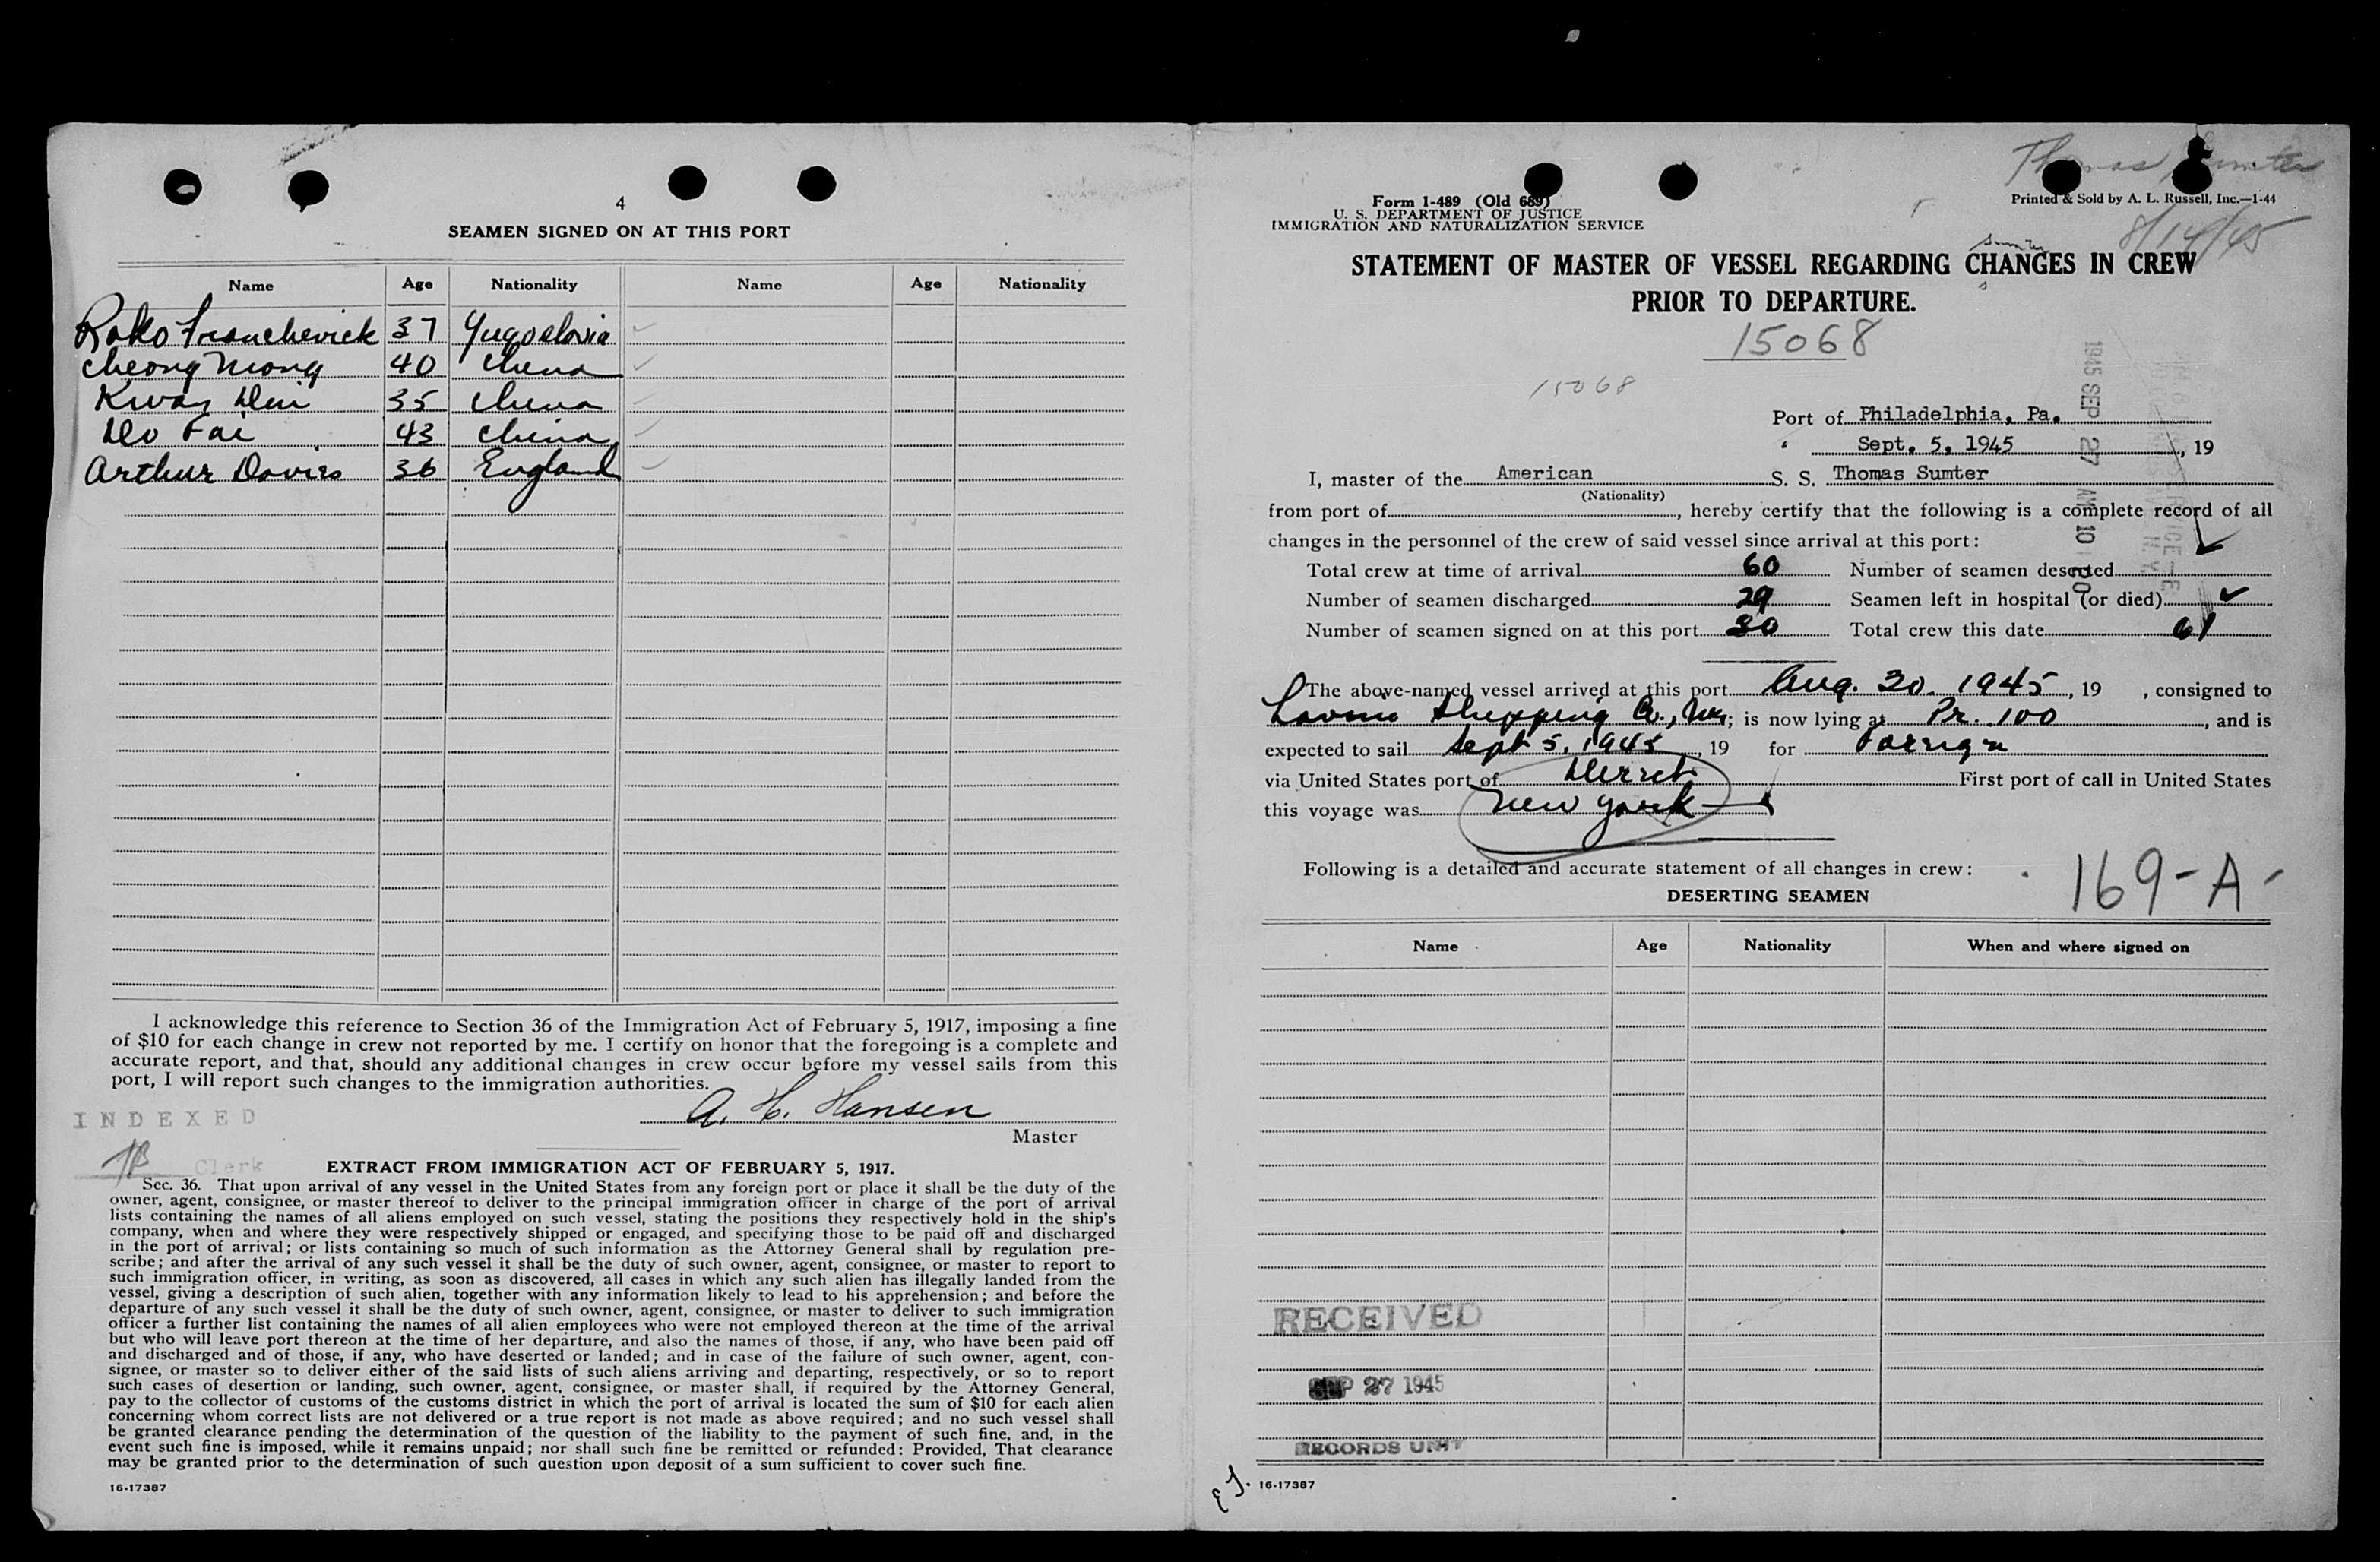 4
SEAMEN SIGNED ON AT THIS PORT
Name Age Nationality Name Age Nationality
Roko Franchevick 37 Yugoslavia
Cheong Mong 40 China
Kwan 35 China
43 China
Arthur Davies 36 England
I acknowledge this reference to Section 36 of the Immigration Act of February 5, 1917, imposing a fine
of $10 for each change in crew not reported by me. I certify on honor that the foregoing is a complete and
accurate report, and that, should any additional changes in crew occur before my vessel sails from this
port, I will report such changes to the immigration authorities.
A. H. Hansen
Master
INDEXED
Clerk
EXTRACT FROM IMMIGRATION ACT OF FEBRUARY 5, 1917.
Sec. 36. That upon arrival of any vessel in the United States from any foreign port or place it shall be the duty of the
owner, agent, consignee, or master thereof to deliver to the principal immigration officer in charge of the port of arrival
lists containing the names of all aliens employed on such vessel, stating the positions they respectively hold in the ship's
company, when and where they were respectively shipped or engaged, and specifying those to be paid off and discharged
in the port of arrival; or lists containing so much of such information as the Attorney General shall by regulation pre-
scribe; and after the arrival of any such vessel it shall be the duty of such owner, agent, consignee, or master to report to
such immigration officer, in writing, as soon as discovered, all cases in which any such alien has illegally landed from the
vessel, giving a description of such alien, together with any information likely to lead to his apprehension; and before the
departure of any such vessel it shall be the duty of such owner, agent, consignee, or master to deliver to such immigration
officer a further list containing the names of all alien employees who were not employed thereon at the time of the arrival
but who will leave port thereon at the time of her departure, and also the names of those, if any, who have been paid off
and discharged and of those, if any, who have deserted or landed; and in case of the failure of such owner, agent, con-
signee, or master so to deliver either of the said lists of such aliens arriving and departing, respectively, or so to report
such cases of desertion or landing, such owner, agent, consignee, or master shall, if required by the Attorney General,
pay to the collector of customs of the customs district in which the port of arrival is located the sum of $10 for each alien
concerning whom correct lists are not delivered or a true report is not made as above required; and no such vessel shall
be granted clearance pending the determination of the question of the liability to the payment of such fine, and, in the
event such fine is imposed, while it remains unpaid; nor shall such fine be remitted or refunded: Provided, That clearance
may be granted prior to the determination of such question upon deposit of a sum sufficient to cover such fine.
16-17387
Thomas Sumter
Form 1-489 (Old 689)
U. S. DEPARTMENT OF JUSTICE
IMMIGRATION AND NATURALIZATION SERVICE
Printed & Sold by A. L. Russell, Inc.—1-44
8/14/45
STATEMENT OF MASTER OF VESSEL REGARDING CHANGES IN CREW
PRIOR TO DEPARTURE.
15068
15068
1945 SEP 27 AM 10
Port of Philadelphia, Pa.
Sept. 5, 1945, 19
I, master of the American S. S. Thomas Sumter
(Nationality)
from port of, hereby certify that the following is a complete record of all
changes in the personnel of the crew of said vessel since arrival at this port:
Total crew at time of arrival 60 Number of seamen deserted
Number of seamen discharged 29 Seamen left in hospital (or died)
Number of seamen signed on at this port 30 Total crew this date 61
The above-named vessel arrived at this port Aug. 30. 1945, 19 , consigned to
Lavino Shipping Co., ; is now lying at Pr. 100, and is
expected to sail Sept 5, 1945, 19 for Foreign
via United States port of Direct First port of call in United States
this voyage was New York
Following is a detailed and accurate statement of all changes in crew:
169-A-
DESERTING SEAMEN
Name Age Nationality When and where signed on
RECEIVED
SEP 27 1945
RECORDS UNIT
16-17387